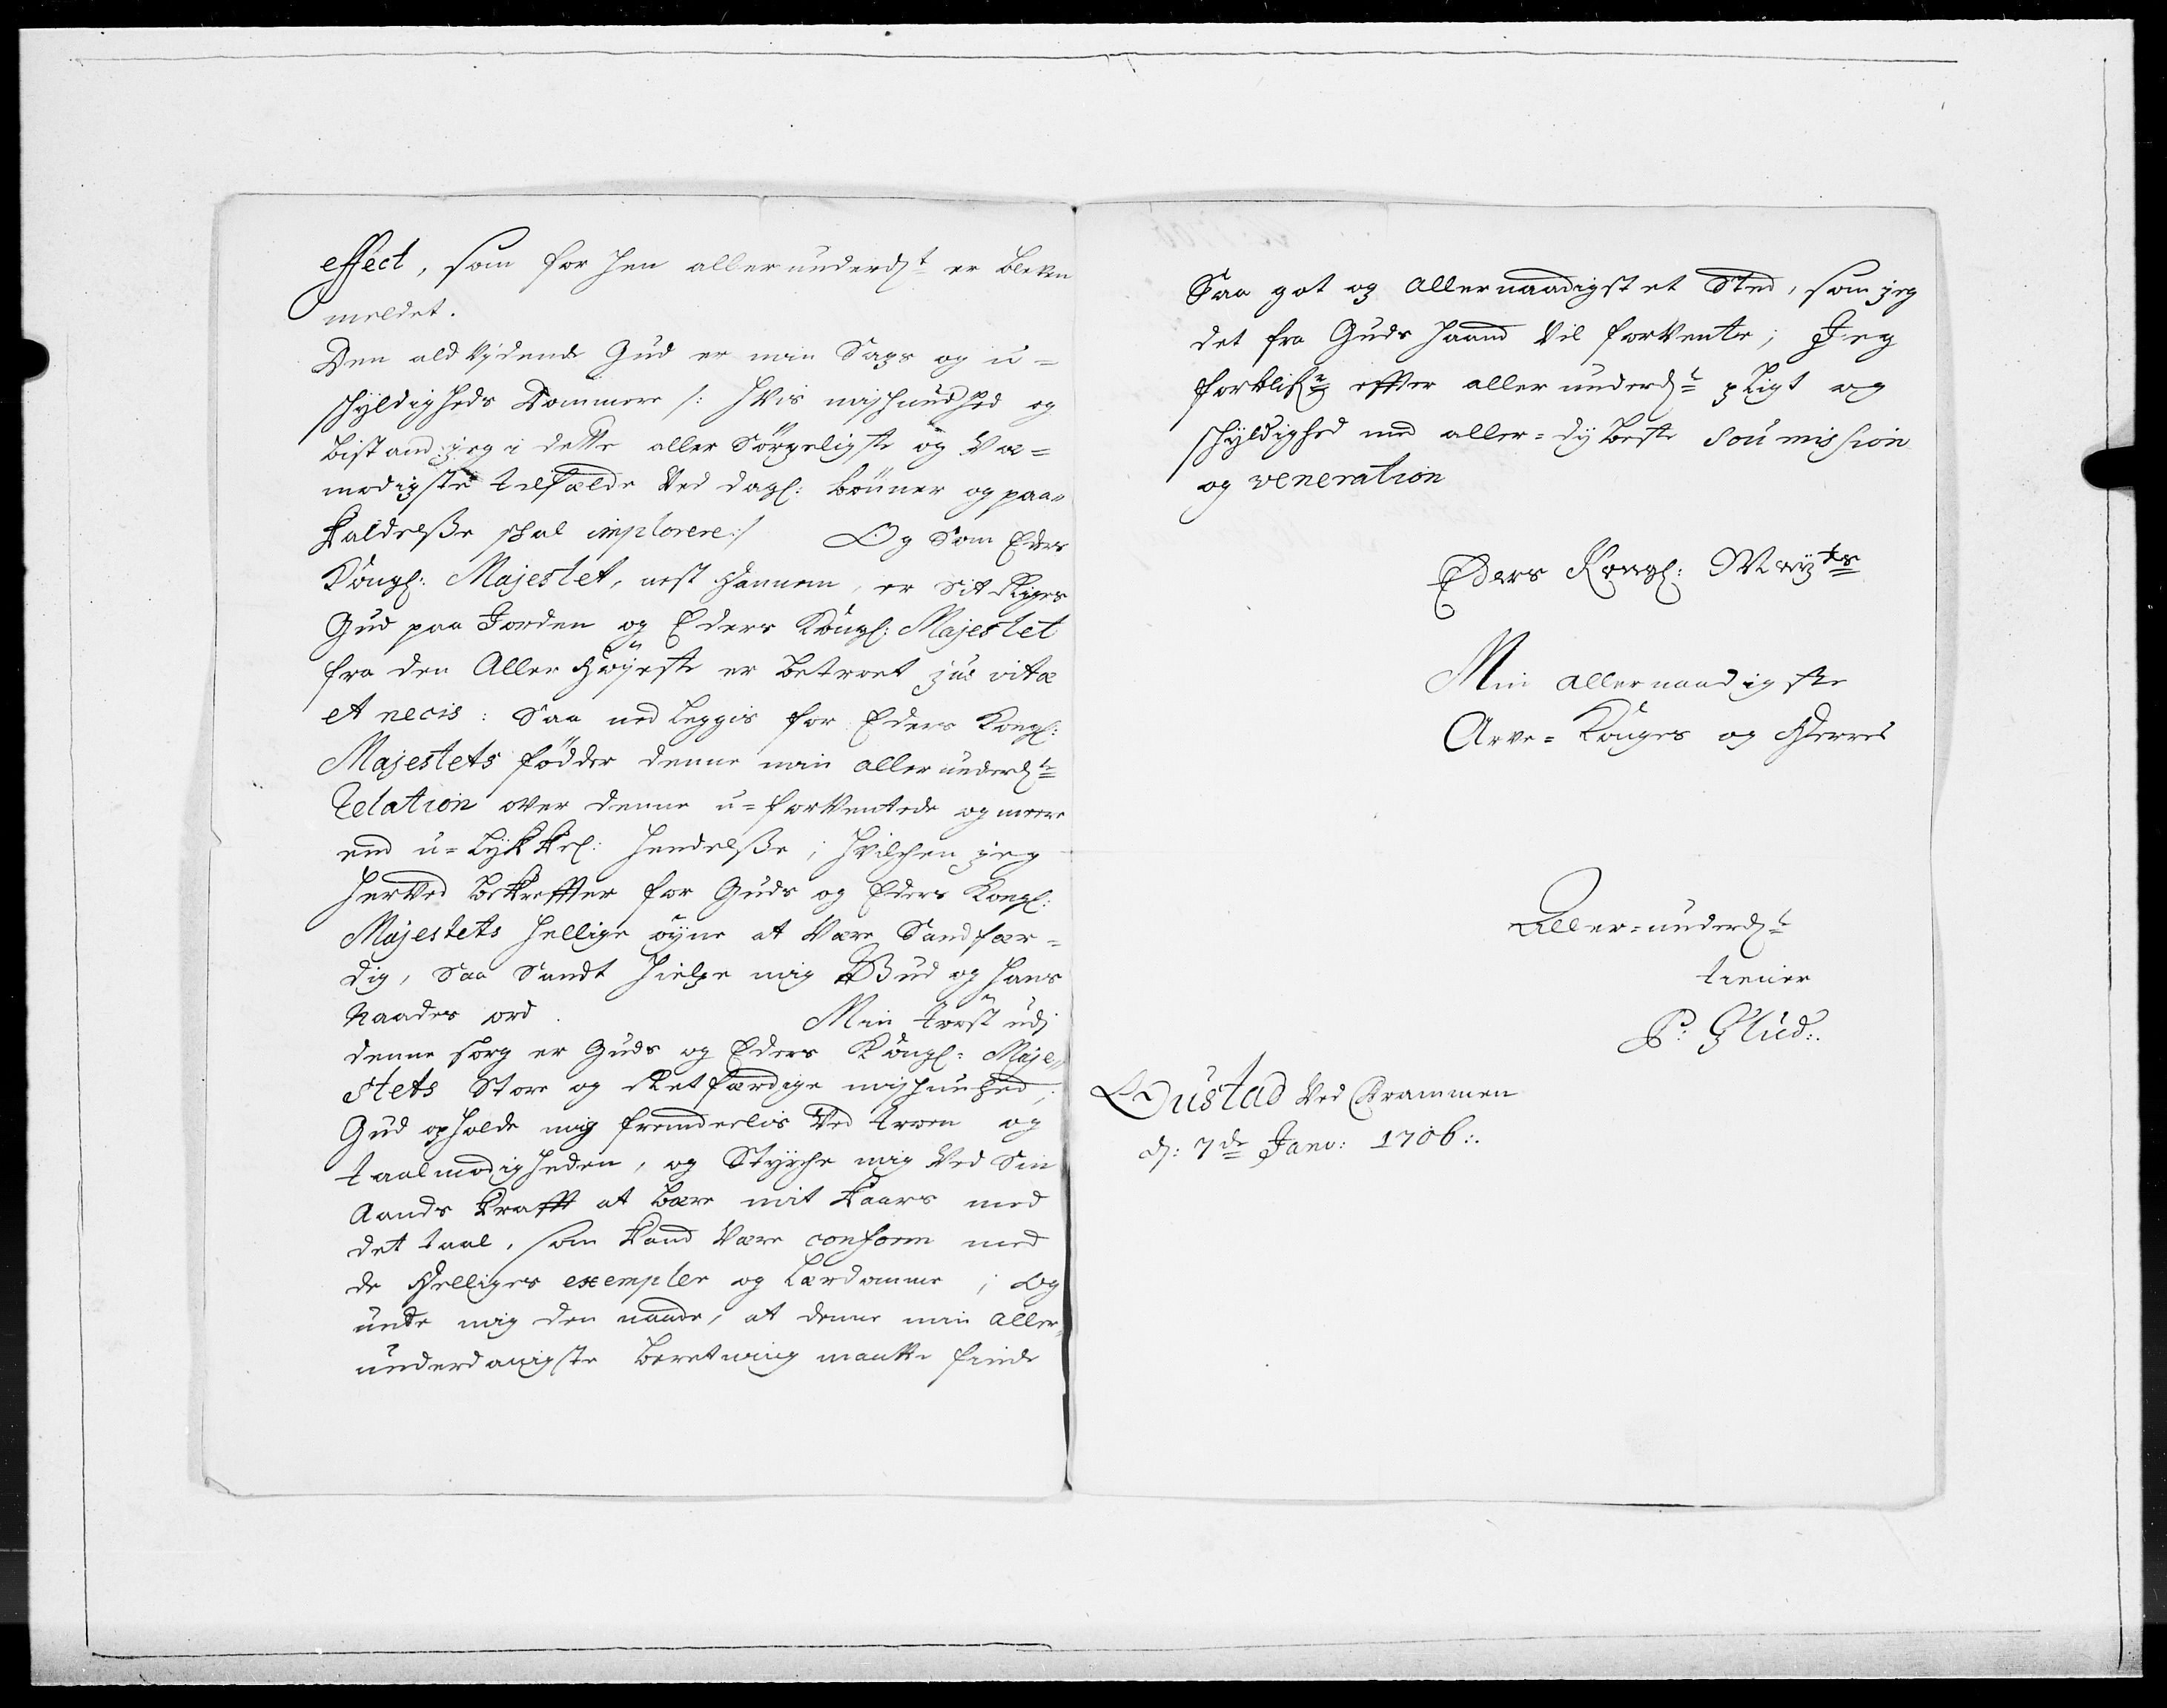 effect, som for hen allerunderd:t er bleven
meldet.
Den ald Vydende Gud er min Sags og u=
schyldigheds Dommere /: hvis mischundhed og
bistand jeg i dette aller Sörgeligste og Væ=
modigste tilfælde Ved dagl: bönner og paa=
kaldelsse schal implorere:/ Og Som Eders
Köngl: Majestet, nest hannem, er Sit Riges
Gud paa Jorden og Eders Köngl: Majestet
fra den Aller Höyeste er betroet jus vitæ
et necis: Saa nedleggis for Eders Kongl:
Majestets födder denne min allerunderd:te
Relation over denne u=forventede og meere
end u=lykkel: hendelsse; hvilchen jeg
herved bekreffter for Guds og Eders Kongl:
Majestets hellige öyne at Være Sandfær=
dig, Saa Sandt hielpe mig Gud og hans
Naades ord. Min tröst udj
denne sorg er Guds og Eders Köngl: Maje=
stets Store og Retfærdige mischunhed;
Gud opholde mig fremdeelis Ved troen og
taalmodigheden, og Styrche mig Ved Sin
Aands Krafft at bære mit Kaars med
det taal, som Kand Være conform med
de Helliges exempler og Lærdomme; Og
unde mig den naade, at denne min aller=
underdanigste beretning maatte finde
Saa got og allernaadigst et Sted, som jeg
det fra Guds haand Vil forvente; Jeg
forblif:r effter allerunderd:t pligt og
schyldighed med aller=dybeste soumission
og veneration
Eders Kongl: May:ts
Min allernaadigste
Arve=Konges og Herres
Aller=underd:t
tiener
P: Glud:.
Gustad Ved Drammen
d: 7de Janv: 1706:.